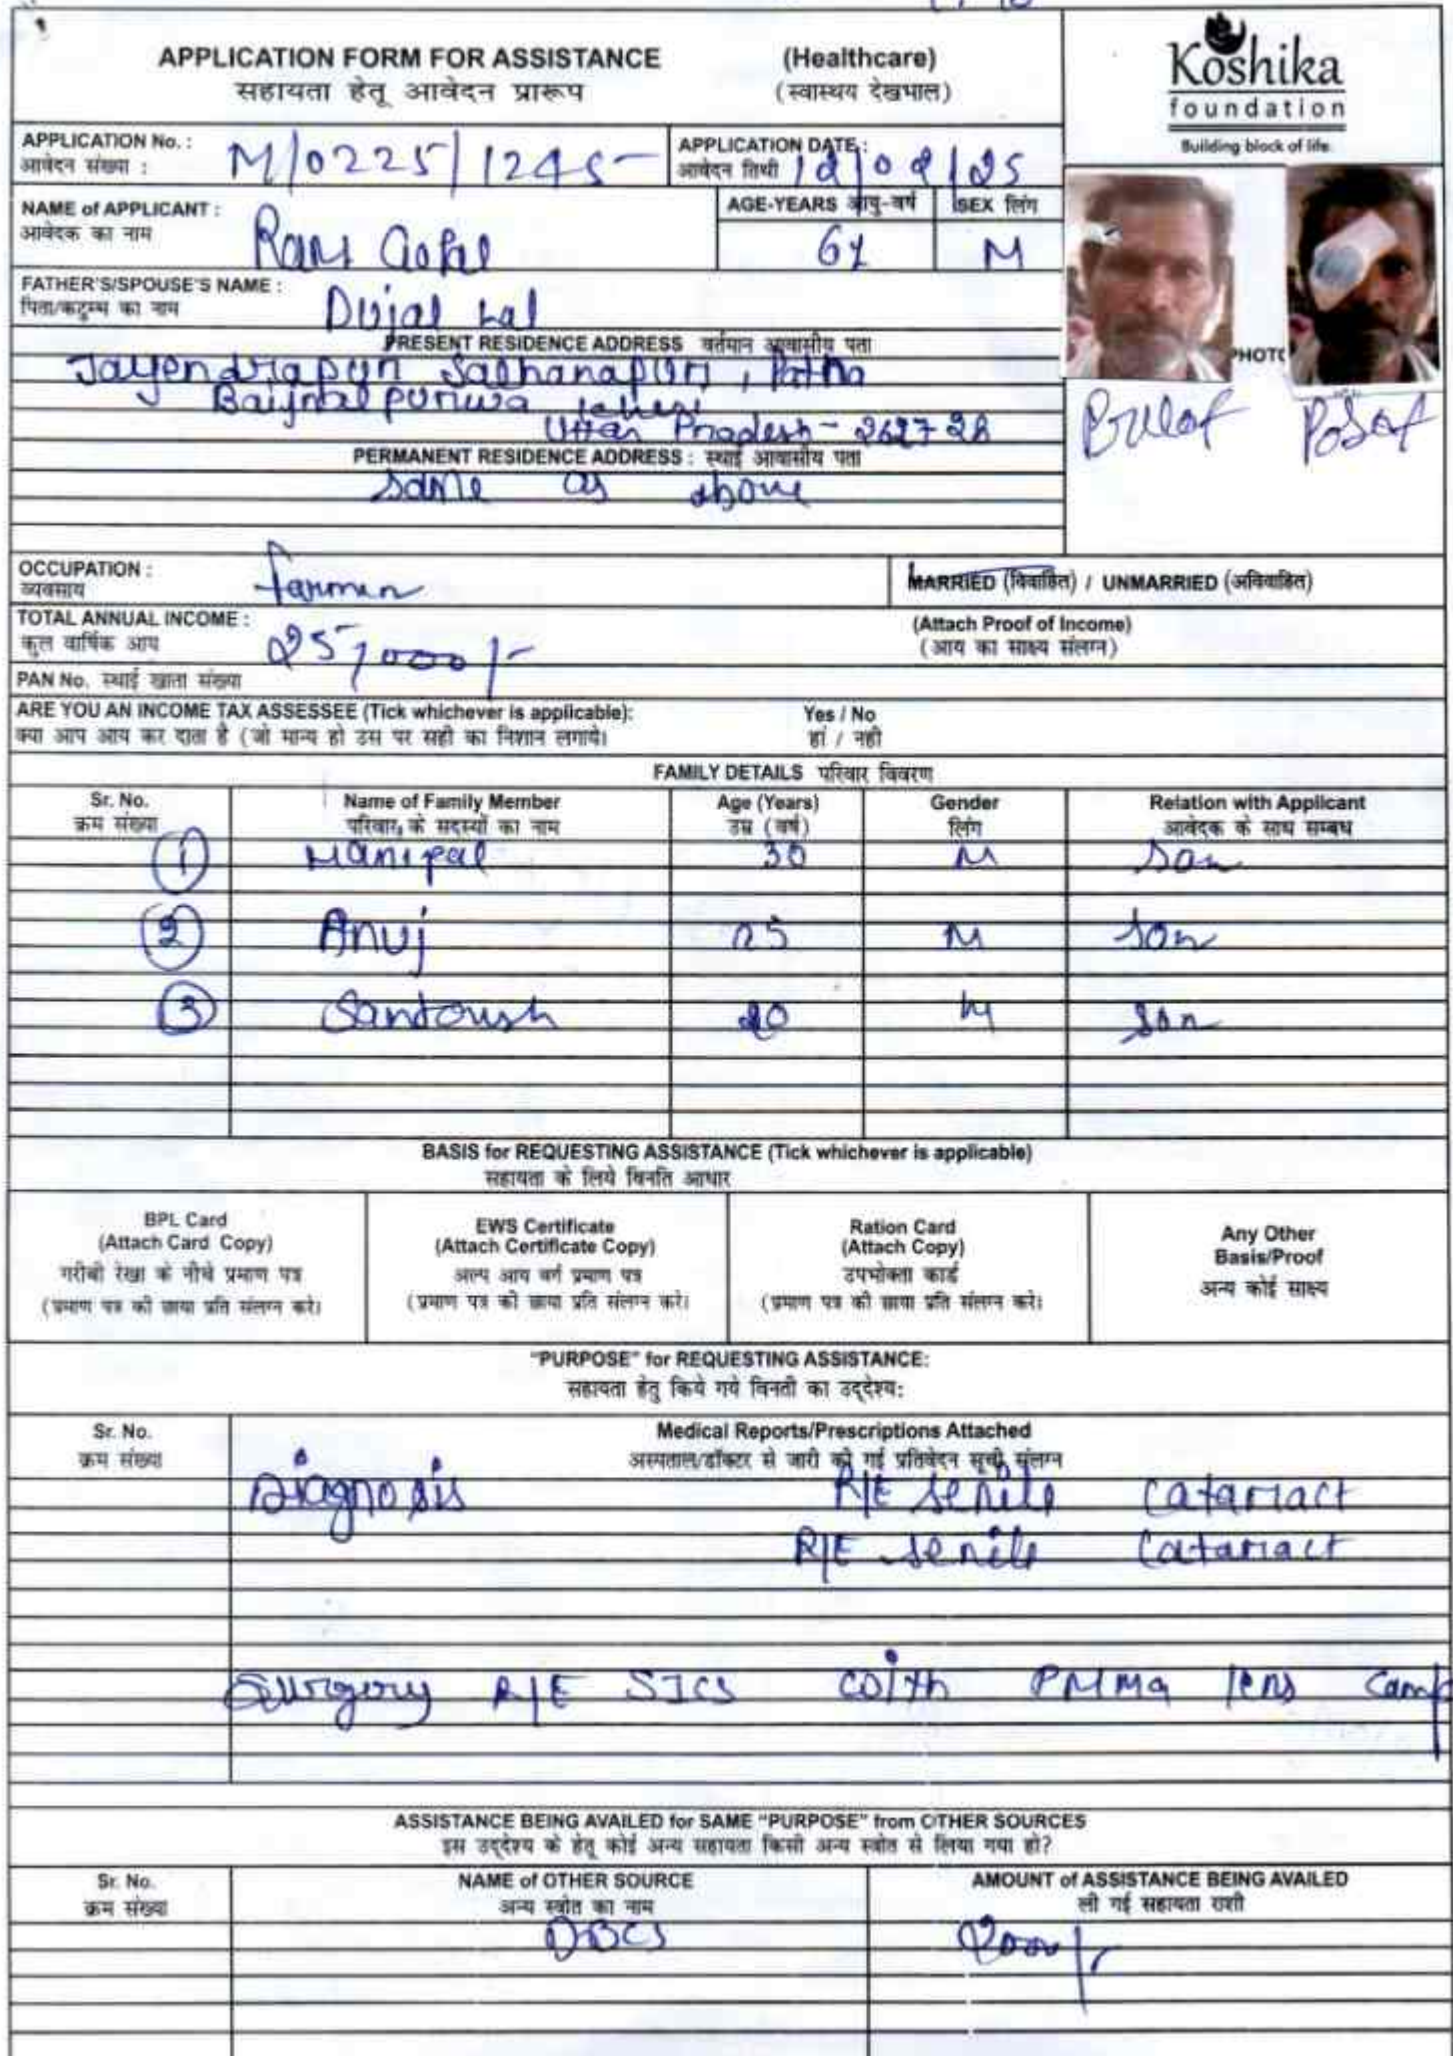 APPLICATION FORM FOR ASSISTANCE (Healthcare)
सहायता हेतू आवेदन प्रारूप (स्वास्थय देखभाल)
Koshika
foundation
Building block of life.
APPLICATION No. : M/0225/1245
आवेदन संख्या :
APPLICATION DATE :
आवेदन तिथी 12/02/25
NAME of APPLICANT : Ram Gopal
आवेदक का नाम
AGE-YEARS आयु-वर्ष SEX लिंग
M
FATHER'S/SPOUSE'S NAME :
पिता/कटुम्ब का नाम Dujal Lal
PRESENT RESIDENCE ADDRESS वर्तमान आवासीय पता
PHOTO
Uttar Pradesh - 262728
PERMANENT RESIDENCE ADDRESS : स्थाई आवासीय पता
same as above
OCCUPATION : farmer
व्यवसाय
MARRIED (विवाहित) / UNMARRIED (अविवाहित)
TOTAL ANNUAL INCOME :
कुल वार्षिक आय 25,000/-
(Attach Proof of Income)
(आय का साक्ष्य संलग्न)
PAN No. स्थाई खाता संख्या
ARE YOU AN INCOME TAX ASSESSEE (Tick whichever is applicable): Yes / No
क्या आप आय कर दाता है (जो मान्य हो उस पर सही का निशान लगाये। हां / नही
FAMILY DETAILS परिवार विवरण
Sr. No. Name of Family Member Age (Years) Gender Relation with Applicant
क्रम संख्या परिवार के सदस्यों का नाम उम्र (वर्ष) लिंग आवेदक के साथ सम्बध
1 Manipal 30 M son
2 Anuj 25 M son
3 Santoush 20 M son
BASIS for REQUESTING ASSISTANCE (Tick whichever is applicable)
सहायता के लिये विनति आधार
BPL Card
(Attach Card Copy)
गरीबी रेखा के नीचे प्रमाण पत्र
(प्रमाण पत्र की छाया प्रति संलग्न करे।
EWS Certificate
(Attach Certificate Copy)
अल्प आय वर्ग प्रमाण पत्र
(प्रमाण पत्र की छाया प्रति संलग्न करे।
Ration Card
(Attach Copy)
उपभोक्ता कार्ड
(प्रमाण पत्र की छाया प्रति संलग्न करे।
Any Other
Basis/Proof
अन्य कोई साक्ष्य
"PURPOSE" for REQUESTING ASSISTANCE:
सहायता हेतु किये गये विनती का उद्देश्य:
Sr. No. Medical Reports/Prescriptions Attached
क्रम संख्या अस्पताल/डॉक्टर से जारी की गई प्रतिवेदन सूची संलग्न
Diagnosis R/E senile catariact
R/E senile catariact
Surgery R/E SICS with PMMA lens Camp
ASSISTANCE BEING AVAILED for SAME "PURPOSE" from OTHER SOURCES
इस उद्देश्य के हेतू कोई अन्य सहायता किसी अन्य स्त्रोत से लिया गया हो?
Sr. No. NAME of OTHER SOURCE AMOUNT of ASSISTANCE BEING AVAILED
क्रम संख्या अन्य स्त्रोत का नाम ली गई सहायता राशी
DBCS 2000/-